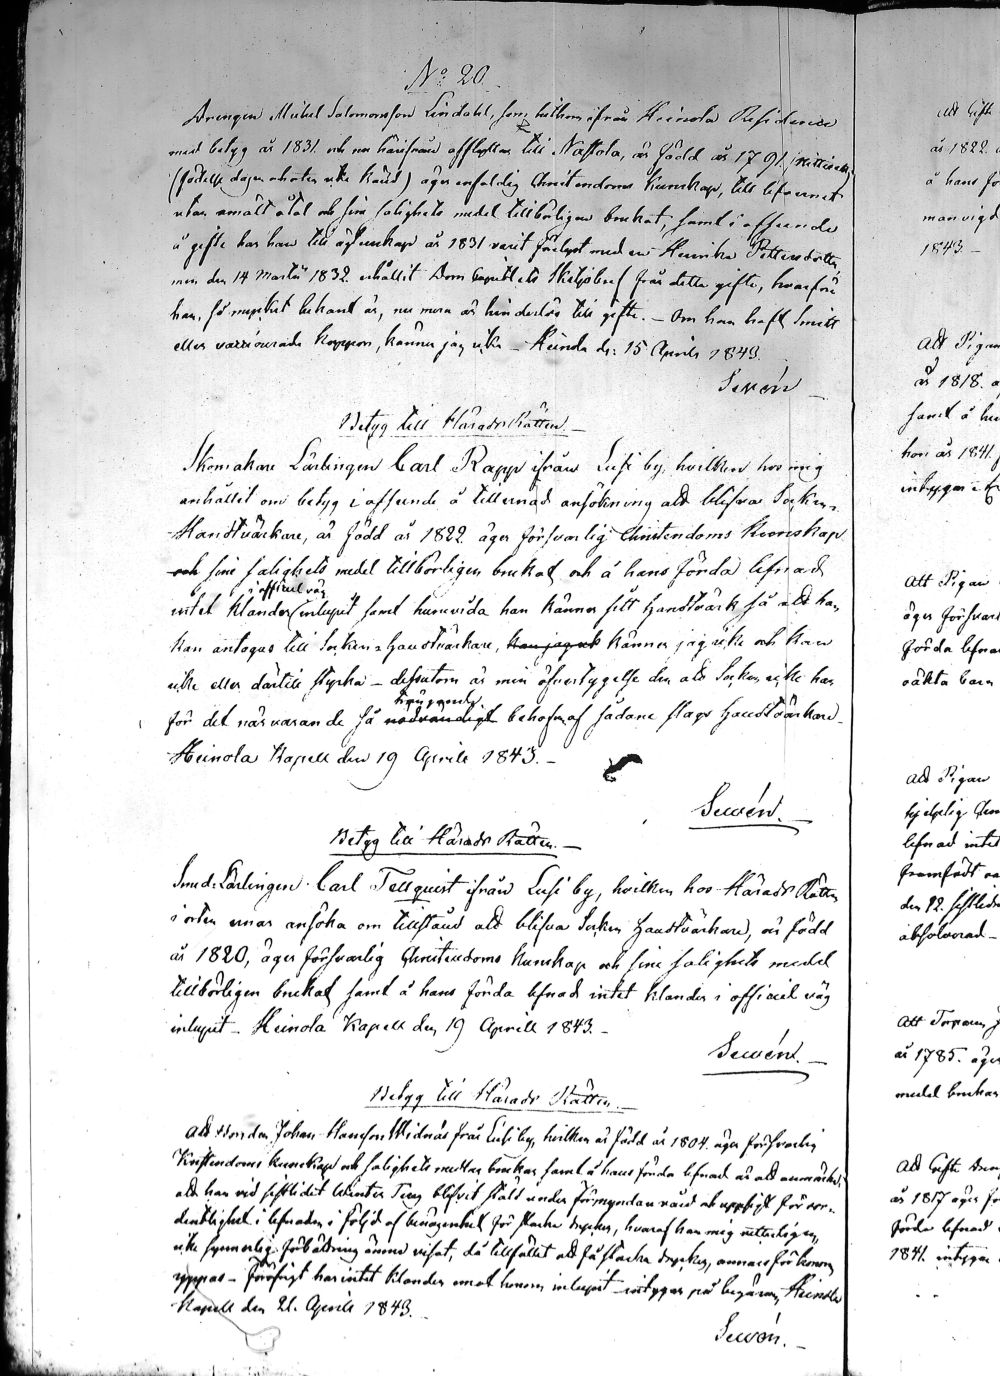 No 20
Drengen Michel Salomonsson Lindahl, som hitkom ifrån Heinola Residence
med betyg år 1831. och nu härifrån afflyttar till Nastola, är född år 1791.
(födelse dagen och orten icke känd) äger enfaldig Christendoms kunskap, till lefvernet
utan åtal och sine salighets medel tillbörligen brukat, samt i afseende
å gifte har han till ägtenskap år 1831 varit förlyst med en Henrika Pettersdotter
men den 14 Martii 1832 erhållit Dom Capitlets Skiljobref från detta gifte, hvarföre
han, så mycket bekant är, nu mera är hinderlös till gifte. – Om han haft Smitt
eller varriourade koppor, känner jag icke – Heinola d: 15 Aprils 1843.
Sewén
Betyg till Härads Rätten –
Skomakare Lärlingen Carl Rapp ifrån Lusi by, hvilken hos mig
anhållit om betyg i afseende å tillernad ansökning att blifva Socken-
Handtvärkare, är född år 1822 äger försvarlig Christendoms kunskap
och sine salighets medel tillbörligen brukat och å hans förda lefnad
i officiel väg
intet klander inlupit samt huruvida han känner sitt handtvärk så att han
kan antagas till Sockne Handtvärkare, kan jag ock känner jag icke och kan
icke eller därtill styrka – desutom är min öfvertygelse den att Socken icke har
trängande
för det närvarande så nödvändigt behof af sådane slags Handtvärkare
Heinola Kapell den 19 Aprils 1843. –
Sewén. –
Betyg till Härads Rätten. –
Smeds Lärlingen Carl Tellquist ifrån Lusi by, hvilken hos Härads Rätten
i orten ernar ansöka om tillstånd att blifva Socken Handtvärkare, är född
år 1820, äger försvarlig Christendoms kunskap och sine salighets medel
tillbörligen brukat samt å hans förda lefnad intet klander i officiel väg
inlupit – Heinola Kapell den 19 Aprill 1843. –
Sewén. –
Betyg till Härads Rätten –
Att Bonden Johan Hansson Widnäs från Lusi by, hvilken är född år 1804. äger försvarlig
Kristendoms kunskap och salighets medlen brukar samt å hans förda lefnad är att anmärka
att han vid sistlidet Winter Ting blifvit stäld under förmyndare vård och uppsigt för oor-
dentlighet i lefnaden i följd af benägenhet för starka drycker, hvaraf han mig vetterligen
icke synnerlig förbättring ännu visat, då tillfället att få starka drycker, annars för honom
yppas – Föröfrigt har intet klander emot honom inlupit intygar på begäran, Heinola
Kapell den 21. Aprils 1843.
Sewén. –
Att Gift
år 1822.
å hans fö
man vigd
1843 –
Att Pigan
år 1818.
samt å hen
hon år 1841.
intygar
Att Pigan
äger försvar
förda lefna
oäkta barn
Att Pigan
lefnad intet
framfödt
den 12. sistlid
absolverad –
Att Torparen
år 1785. äger
medel brukar
Att Gift Dren
år 1817 äger fö
förda lefnad
1841. intygar